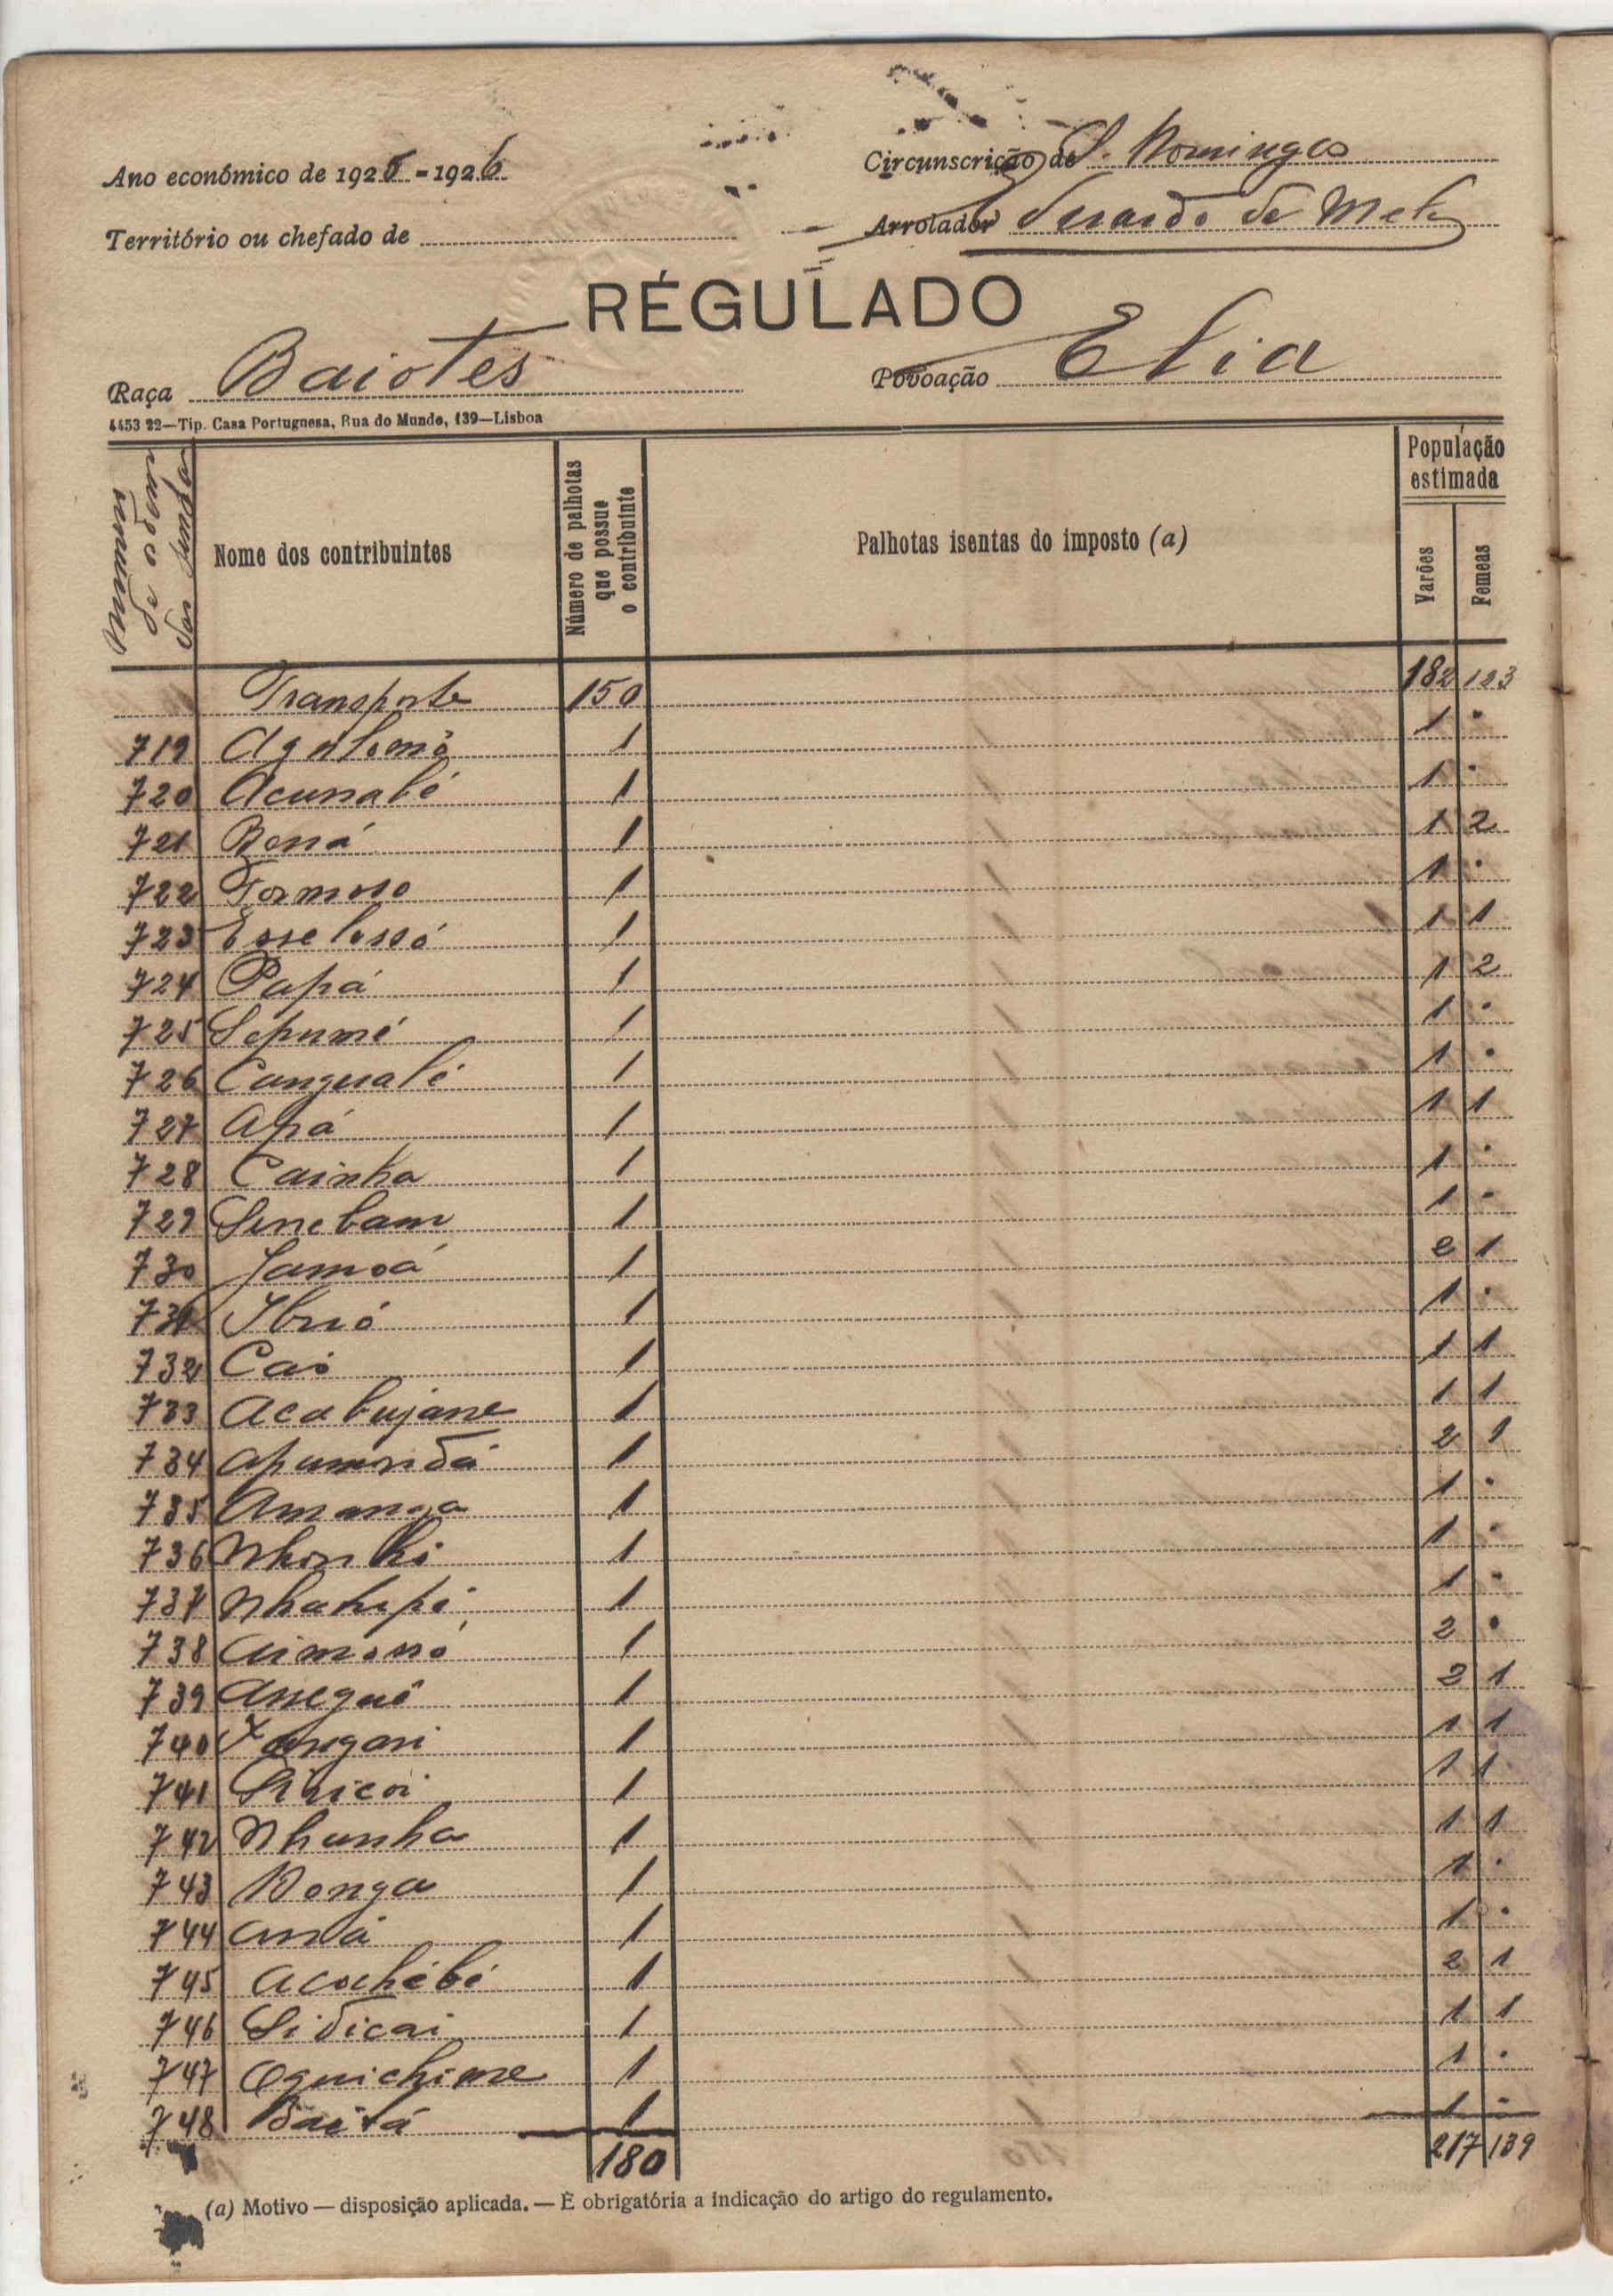 Ano económico de 1925-1926
Circunscrição de S. Domingos
Território ou chefado de
Arrolador Eduardo de Melo
RÉGULADO
Raça Baiotes
Povoação Elia
4453 22—Tip. Casa Portuguesa, Rua do Mundo, 139—Lisboa
Numero de ordem das senhas
Nome dos contribuintes
Número de palhotas que possue o contribuinte
Palhotas isentas do imposto (a)
População estimada
Varões
Femeas
Transporte 150 182 123
719 1 1 "
720 Acunaló 1 1 "
721 Bená 1 1 2
722 Formoso 1 1 "
723 1 1 1
724 Papá 1 1 2
725 Sepumé 1 1 "
726 Cangualé 1 1 "
727 Apá 1 1 1
728 Cainha 1 1 "
729 Sinebam 1 1 "
730 Jamoá 1 2 1
731 1 1 "
732 Caió 1 1 1
733 Acabujane 1 1 1
734 Apumondá 1 2 1
735 Amanga 1 1 "
736 1 1 "
737 1 1 "
738 Aimonó 1 2 "
739 Anegué 1 2 1
740 Xangari 1 1 1
741 Siricoi 1 1 1
742 Nhunha 1 1 1
743 Donga 1 1 "
744 1 1 "
745 Acochébé 1 2 1
746 Sidicai 1 1 1
747 Oquichime 1 1 "
748 Baitá 1 1 "
180 217 139
(a) Motivo — disposição aplicada. — É obrigatória a indicação do artigo do regulamento.